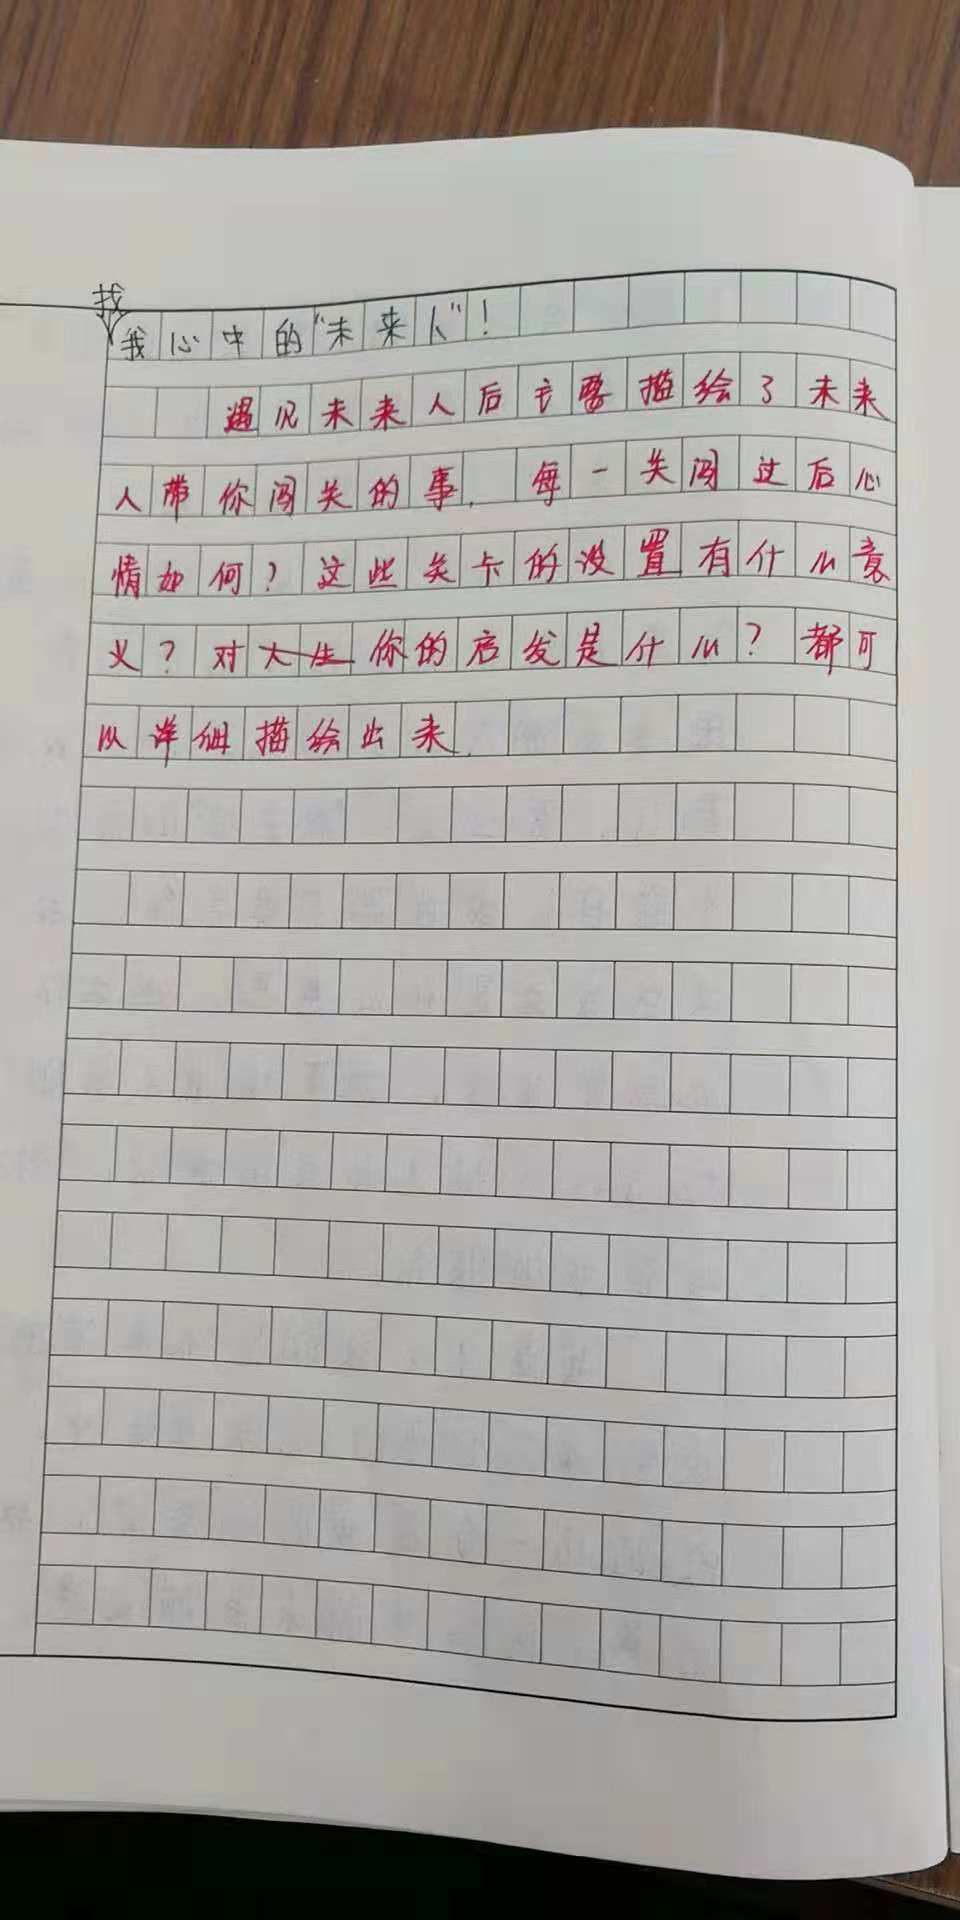 找
我心中的“未来人”！
遇见未来人后主要描绘了未来
人带你闯关的事．每一关闯过后心
情如何？这些关卡的设置有什么意
义？对人生你的启发是什么？都可
以详细描绘出来．